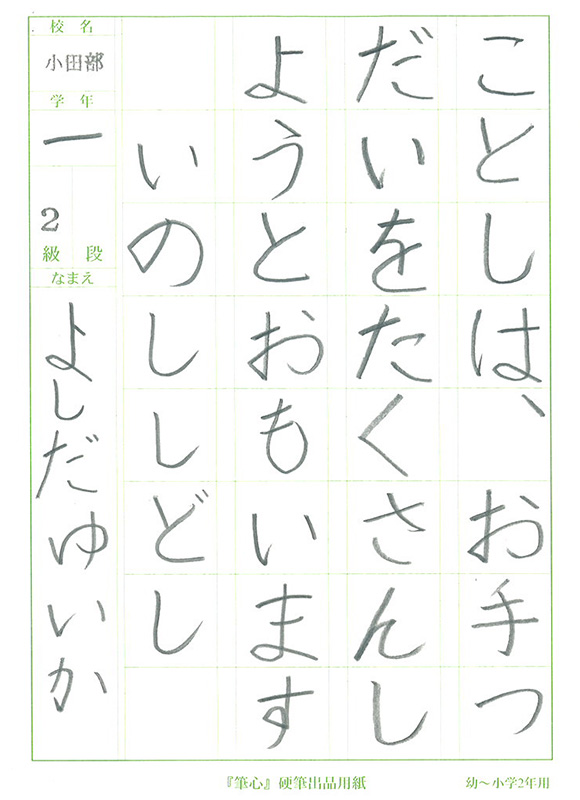 ことしは、お手つ
だいをたくさんし
ようとおもいます
いのししどし
校名
小田部
学年
一
2
級 段
なまえ
よしだゆいか
『筆心』硬筆出品用紙
幼〜小学2年用